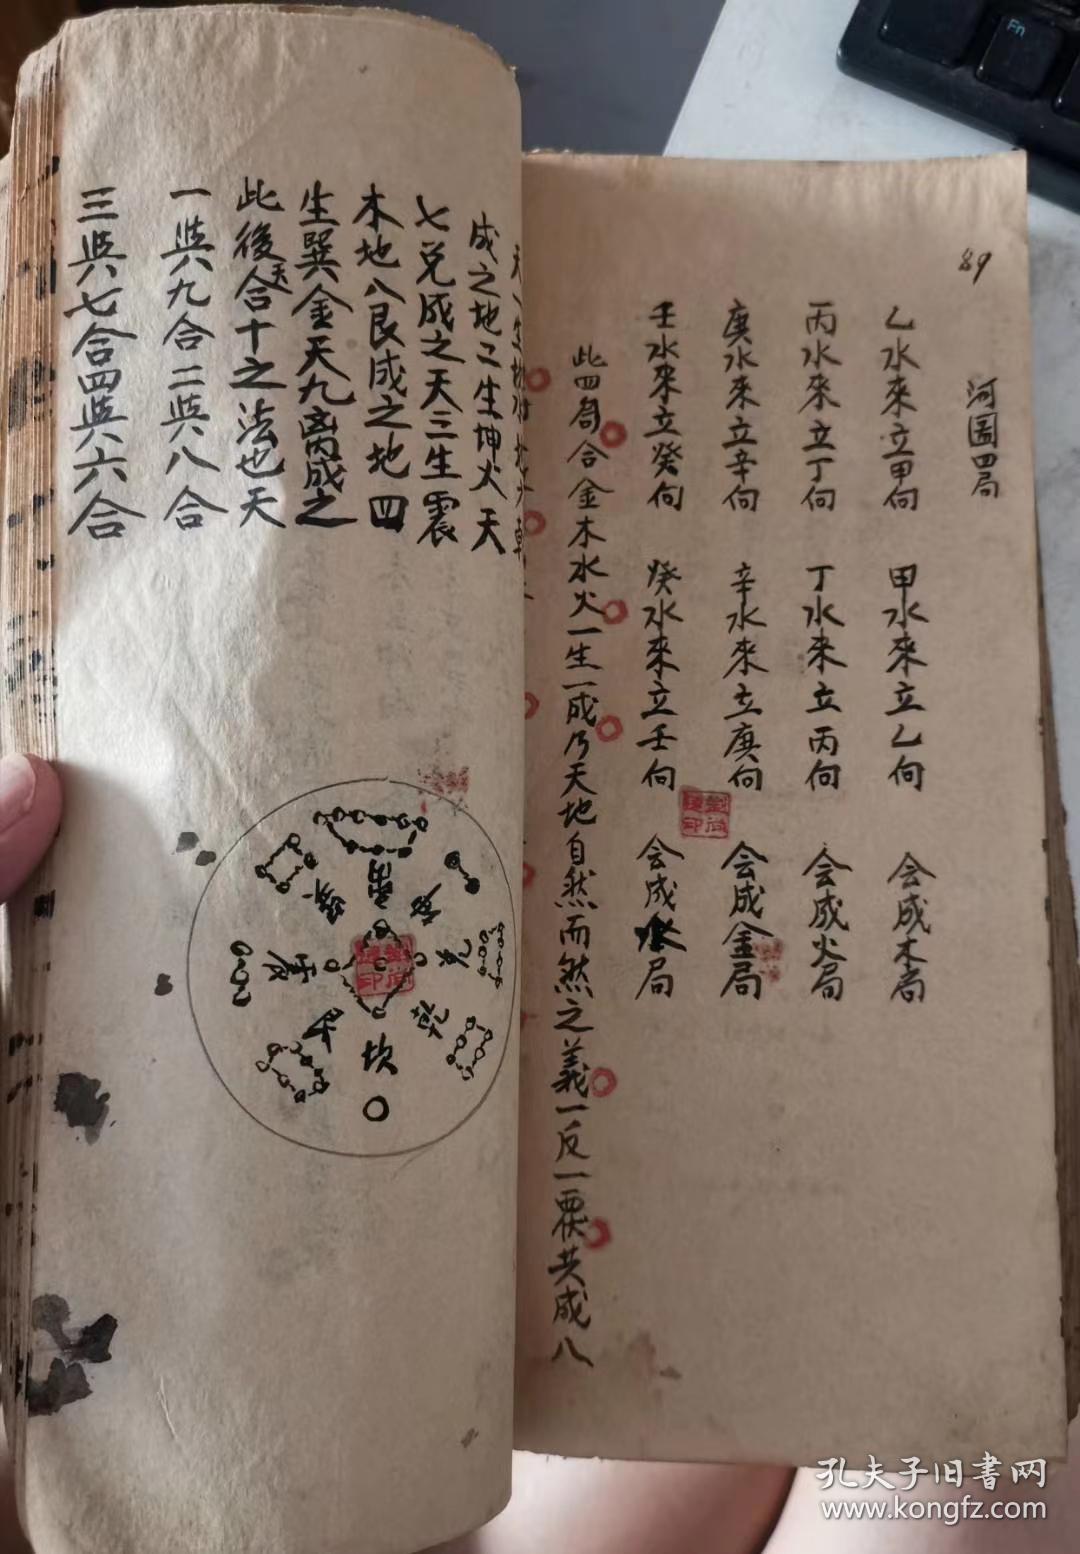 89
河圖四局
乙水來立甲向 甲水來立乙向 会成木局
丙水來立丁向 丁水來立丙向 会成火局
庚水來立辛向 辛水來立庚向 会成金局
壬水來立癸向 癸水來立壬向 会成水局
此四局合金木水火一生一成乃天地自然而然之義一反一覆共成八
成之地二生坤火天
七兌成之天三生震
木地八艮成之地四
生巽金天九离成之
此後天合十之法也天
一與九合二與八合
三與七合四與六合
离
坤
兌
乾
坎
艮
震
巽
Fn
孔夫子旧書网
www.kongfz.com